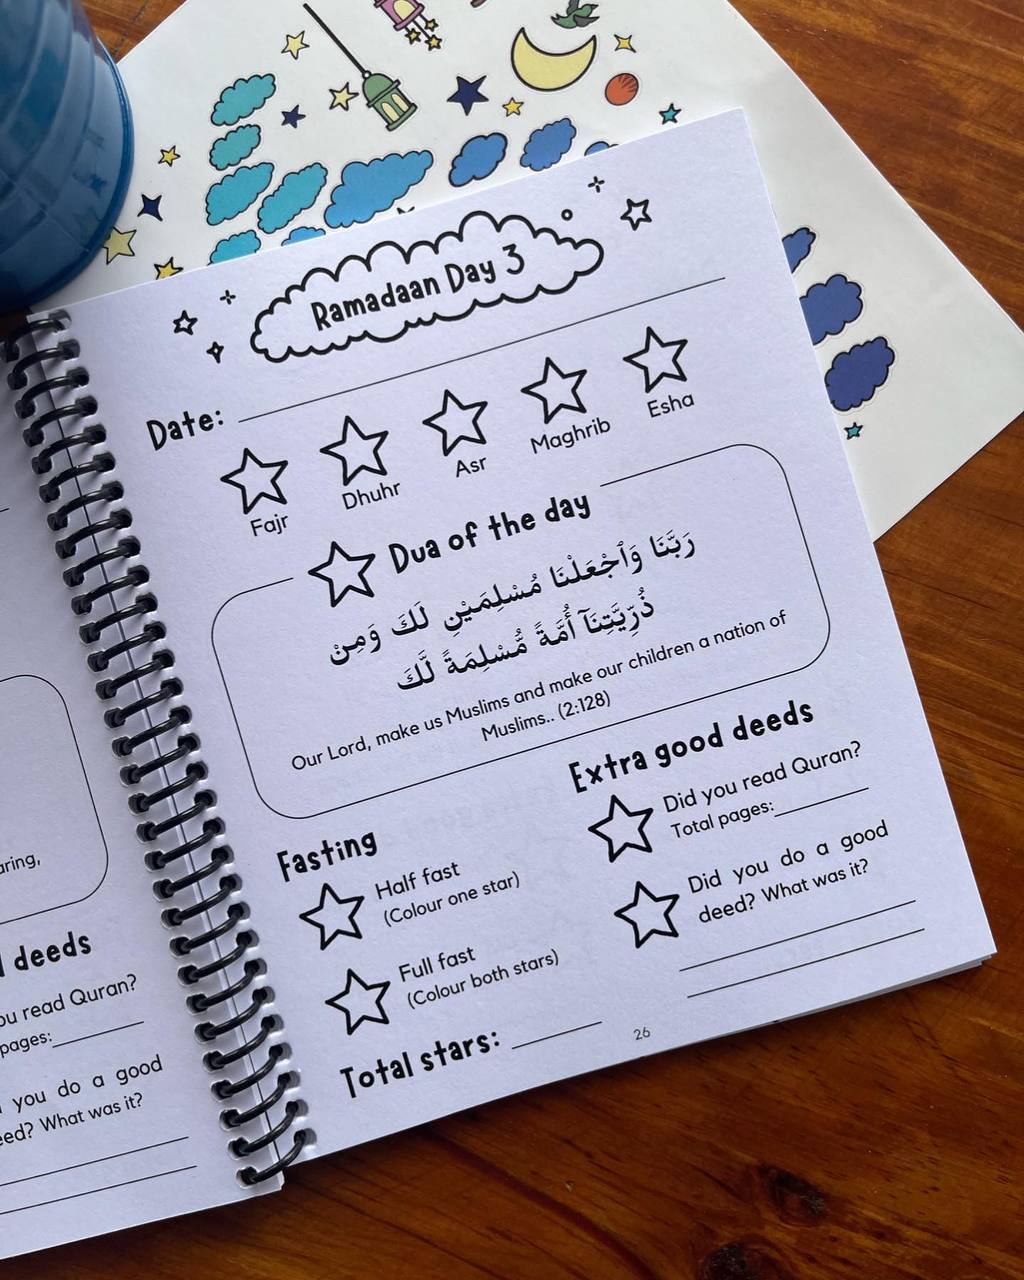 Ramadaan Day 3
Date:
Fajr
Dhuhr
Asr
Maghrib
Esha
Dua of the day
رَبَّنَا وَٱجْعَلْنَا مُسْلِمَيْنِ لَكَ وَمِنْ
ذُرِّيَّتِنَآ أُمَّةً مُّسْلِمَةً لَّكَ
Our Lord, make us Muslims and make our children a nation of
Muslims.. (2:128)
Fasting
Half fast
(Colour one star)
Full fast
(Colour both stars)
Total stars:
Extra good deeds
Did you read Quran?
Total pages:
Did you do a good
deed? What was it?
26
aring,
deeds
you read Quran?
pages:
you do a good
deed? What was it?